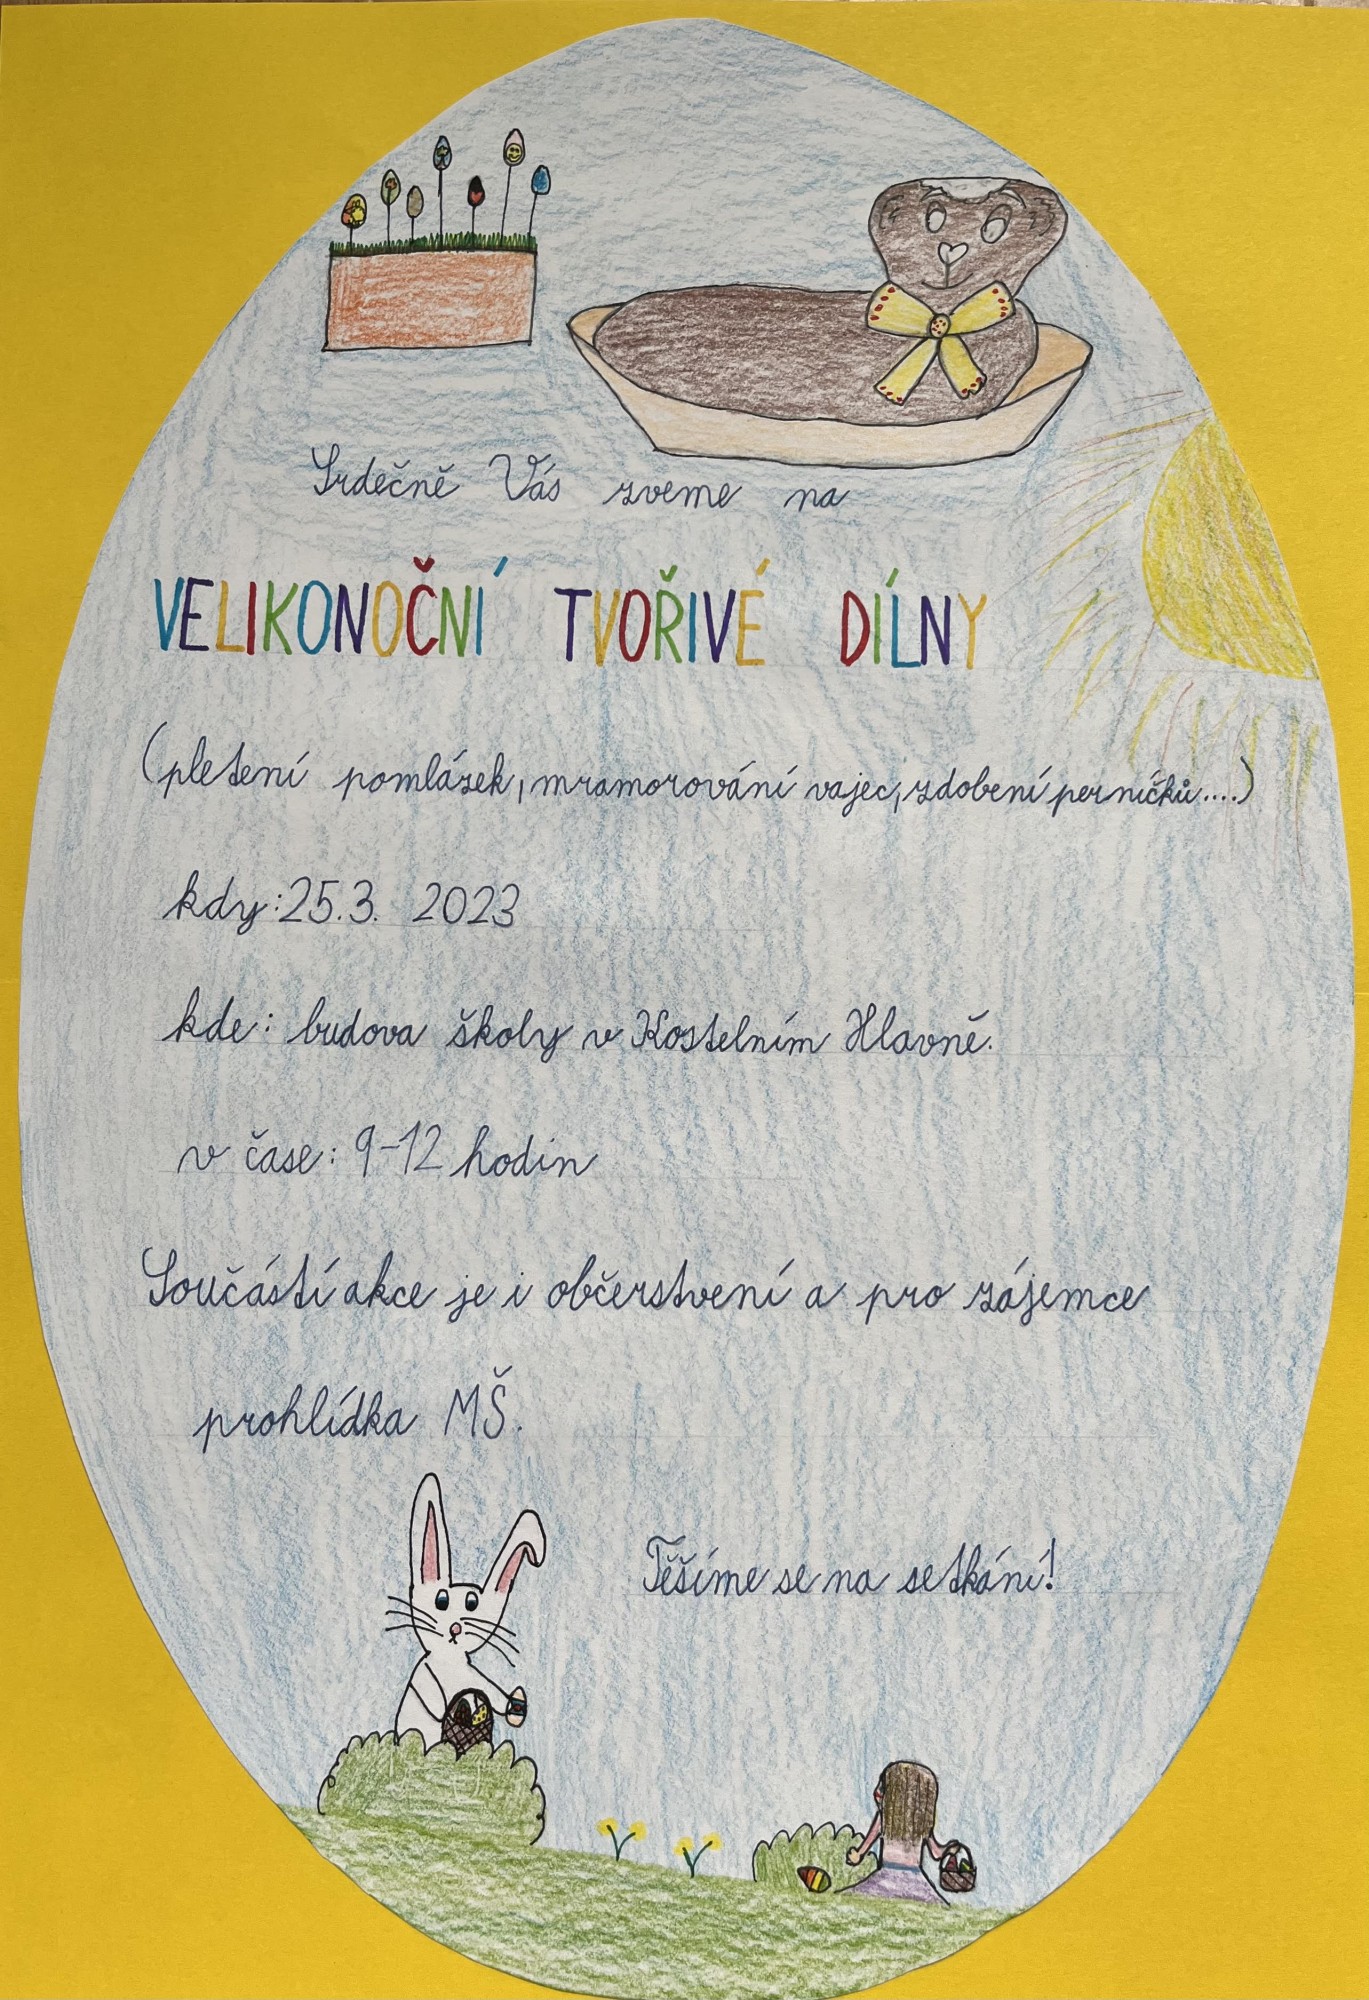 Srdečně Vás zveme na
VELIKONOČNÍ TVOŘIVÉ DÍLNY
(pletení pomlázek, mramorování vajec, zdobení perníčků....)
kdy: 25.3. 2023
kde: budova školy v Kostelním Hlavně.
v čase: 9-12 hodin
Součástí akce je i občerstvení a pro zájemce
prohlídka MŠ.
Těšíme se na setkání!